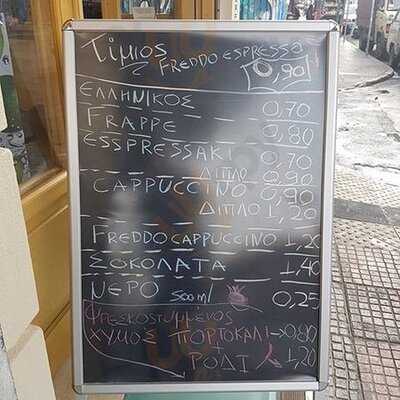 Τίμιος
FREDDO ESPRESSO
0,90
ΕΛΛΗΝΙΚΟΣ 0,70
FRAPPE 0,80
ESSPRESSAKI 0,70
ΔΙΠΛΟ 0,90
CAPPUCCINO 0,90
ΔΙΠΛΟ 1,20
FREDDO CAPPUCCINO 1,20
ΣΟΚΟΛΑΤΑ 1,40
ΝΕΡΟ 500ml 0,25
Φρεσκοστυμμένος
ΧΥΜΟΣ ΠΟΡΤΟΚΑΛΙ → 0,80
+
ΡΟΔΙ 1,20